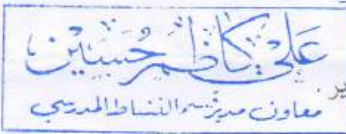 علي كاظم حسين
معاون مدير قسم النشاط المدرسي